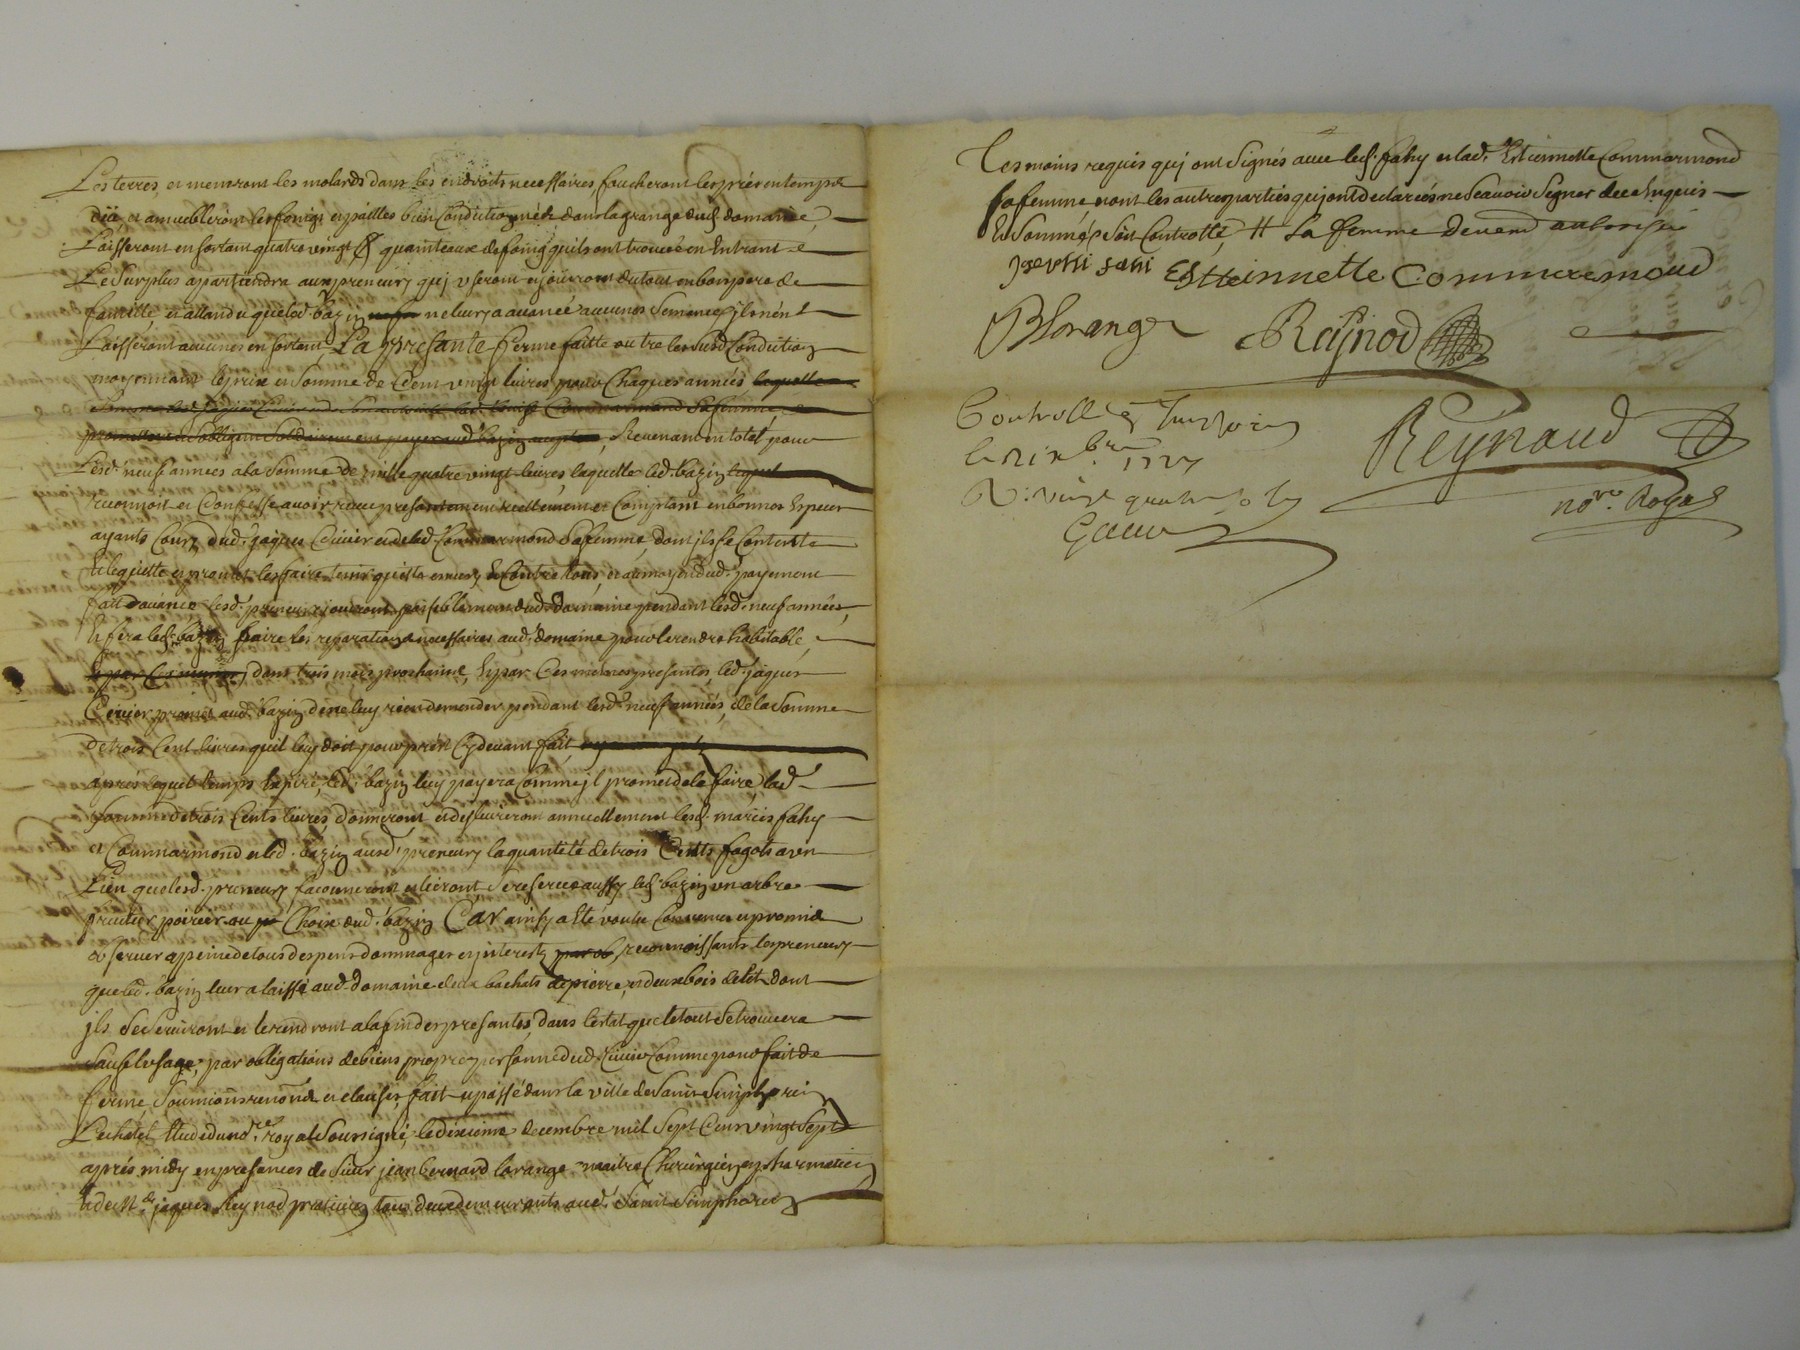 Les terres et menront les molards dans les endroits necessaires faucheront les prés en temps
dû, et ameubleront les foings et pailles bien conditionnés dans la grange dud. domaine,
Laisseront en sortant quatre vingt quinteaux de foing quils ont trouvés en Entrant
Le surplus appartiendra aux preneurs quj useront et jouiront du tout en bon pere de
famille, et attandu que led. bazin ne leur a avancé aucunes semences ils n'en
Laisseront aucunes en sortant La presante ferme faitte outre lesusd. conditions
moyennant le prix et somme de cent vingt livres pour chaques années laquelle
somme led. jaques Civier et lad. Commarmand sa femme
promettent et s'obligent solidairement payer aud. bazin, Revenant en total pour
Lesd. neuf années a la somme de mille quatre vingt livres laquelle led. bazin lequel
reconnoit et Confesse avoir receu presantement reellement et Comptant en bonnes Especes
ayants Cours dud. jaques Civier et de lad. Commarmond sa femme, dont il se Contente
Et les quitte et promet les faire tenir quitte envers Et Contre tous, et au moyen dud. payement
fait d'avance lesd. preneurs jouiront paisiblement dud. domaine pendant lesd. neuf années,
Et fera led. bazin faire les reparations necessaires aud. domaine pour le rendre habitable,
dans trois mois prochains, Et par Ces mêmes presantes, led. jaques
Civier promet aud. bazin de ne luy rien demander pendant lesd. neuf années, de la somme
de trois Cent livres quil luy doit pour prêt Cydevant fait
aprés lequel temps Expiré, led. bazin luy payera Comme jl promet de le faire, lad.
somme de trois Cents livres donneront et deslivreront annuellement lesd. mariés fahy
et Commarmond et led. bazin ausd. preneurs la quantité de trois Cents fagots a un
Lien que lesd. preneurs façonneront et lieront se reserve aussy led. bazin un arbre
fruitier poirier au choix dud. bazin Car ainsy a eté voulu Convenu et promis
observer a peine de tous despens dommages et jnterests, reconnoissants les preneurs
que led. bazin leur a laissé aud. domaine deux bachats de pierre, et deux bois de lit dont
jls se serviront et le rendront a la fin des presantes, dans l'estat que le tout se trouvera
sauf l'usage, par obligations de biens propre personne dud. Civier Comme pour fait de
ferme soumions renonce et clauses, fait et passé dans la ville de Saint Simphorien
Lechatel Etude du nre. royal soussigné, le dixieme decembre mil Sept Cent vingt Sept
aprés midy en presences de Sieur jean bernard lorange maitre Chirurgien et pharmatien
Et de Me. jaques Reynod praticien tous deux demeurants aud. Saint Simphorien
Tesmoins requis quj ont signés avec led. fahy et lad. Estiennette Commarmond
sa femme non les autres parties quj ont declarées ne Scavoir Signer de ce Enquis
Et sommés Soit Controllé, # sa femme
Estteinnette Commaremond
Blorange Raynod
Controllé a St Simphorien
Reynaud
nore. Royal